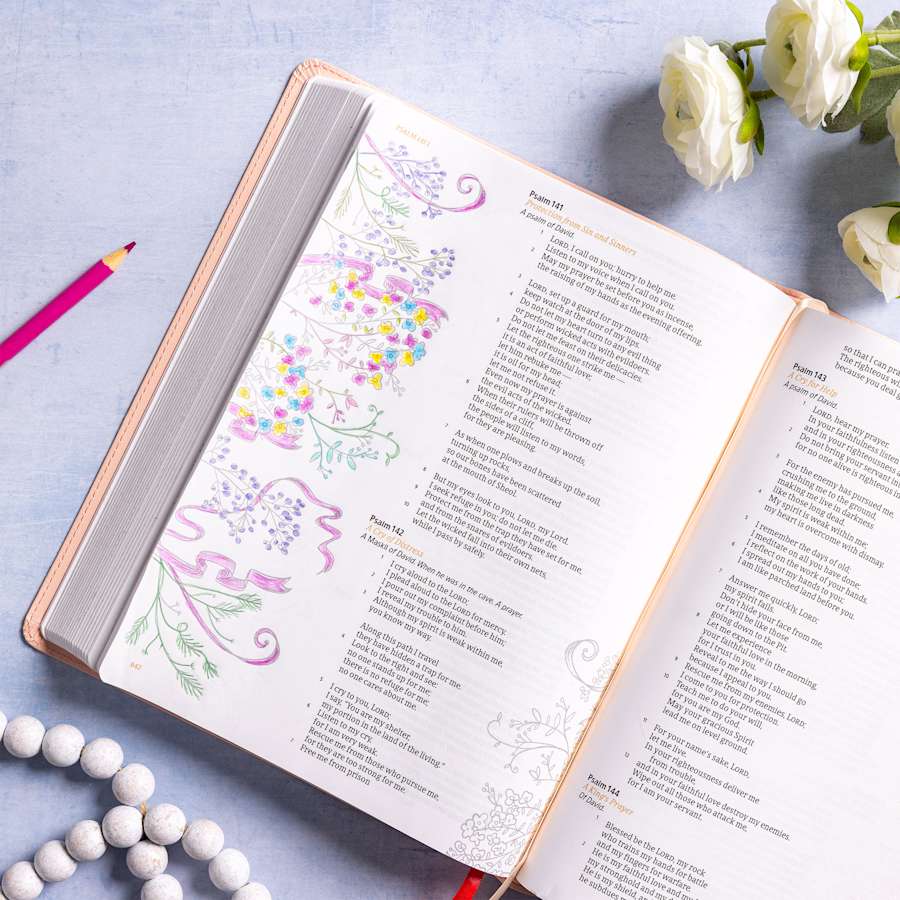 PSALM 141
Psalm 141
Protection from Sin and Sinners
A psalm of David.
1 LORD, I call on you; hurry to help me.
Listen to my voice when I call on you.
2 May my prayer be set before you as incense,
the raising of my hands as the evening offering.
3 LORD, set up a guard for my mouth;
keep watch at the door of my lips.
4 Do not let my heart turn to any evil thing
or perform wicked acts with evildoers.
Do not let me feast on their delicacies.
5 Let the righteous one strike me —
it is an act of faithful love;
let him rebuke me —
it is oil for my head;
let me not refuse it.
Even now my prayer is against
the evil acts of the wicked.
6 When their rulers will be thrown off
the sides of a cliff,
the people will listen to my words,
for they are pleasing.
7 As when one plows and breaks up the soil,
turning up rocks,
so our bones have been scattered
at the mouth of Sheol.
8 But my eyes look to you, LORD, my Lord.
I seek refuge in you; do not let me die.
9 Protect me from the trap they have set for me,
and from the snares of evildoers.
10 Let the wicked fall into their own nets,
while I pass by safely.
Psalm 142
A Cry of Distress
A Maskil of David. When he was in the cave. A prayer.
1 I cry aloud to the LORD;
I plead aloud to the LORD for mercy.
2 I pour out my complaint before him;
I reveal my trouble to him.
3 Although my spirit is weak within me,
you know my way.
Along this path I travel
they have hidden a trap for me.
4 Look to the right and see:
no one stands up for me;
there is no refuge for me;
no one cares about me.
5 I cry to you, LORD;
I say, "You are my shelter,
my portion in the land of the living."
6 Listen to my cry,
for I am very weak.
Rescue me from those who pursue me,
for they are too strong for me.
7 Free me from prison
647
so that I can
The righteous
because you deal
Psalm 143
A Cry for Help
A psalm of David.
1 LORD, hear my prayer.
In your faithfulness listen
and in your righteousness
2 Do not bring your servant
for no one alive is righteous in
3 For the enemy has pursued me,
crushing me to the ground,
making me live in darkness
like those long dead.
4 My spirit is weak within me;
my heart is overcome with dismay.
5 I remember the days of old;
I meditate on all you have done;
I reflect on the work of your hands.
6 I spread out my hands to you;
I am like parched land before you.
7 Answer me quickly, LORD;
my spirit fails.
Don't hide your face from me,
or I will be like those
going down to the Pit.
8 Let me experience
your faithful love in the morning,
for I trust in you.
Reveal to me the way I should go
because I appeal to you.
9 Rescue me from my enemies, LORD;
I come to you for protection.
10 Teach me to do your will,
for you are my God.
May your gracious Spirit
lead me on level ground.
11 For your name's sake, LORD,
let me live.
In your righteousness deliver me
from trouble,
12 and in your faithful love destroy my enemies.
Wipe out all those who attack me,
for I am your servant.
Psalm 144
A King's Prayer
Of David.
1 Blessed be the LORD, my rock
who trains my hands for battle
and my fingers for warfare.
2 He is my faithful love and my
my stronghold and my
He is my shield, and
he subdues my